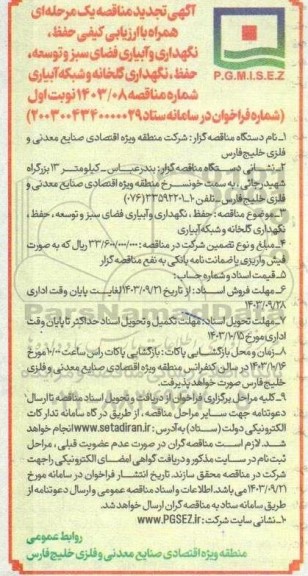 آگهی تجدید مناقصه یک مرحله ای
همراه با ارزیابی کیفی حفظ،
نگهداری و آبیاری فضای سبز و توسعه،
حفظ، نگهداری گلخانه و شبکه آبیاری
P.G.M.I.S.E.Z
شماره مناقصه ۱۴۰۳/۰۸ نوبت اول
(شماره فراخوان در سامانه ستاد ۲۰۰۳۰۰۴۳۴۰۰۰۰۰۲۹)
۱_ نام دستگاه مناقصه گزار: شرکت منطقه ویژه اقتصادی صنایع معدنی و
فلزی خلیج فارس
۲_ نشانی دستگاه مناقصه گزار: بندرعباس_ کیلومتر ۱۳ بزرگراه
شهید رجائی، به سمت خونسرخ منطقه ویژه اقتصادی صنایع معدنی و
فلزی خلیج فارس_ تلفن ۱۰_۳۳۵۹۲۲۰۱ (۰۷۶)
۳_ موضوع مناقصه: حفظ، نگهداری و آبیاری فضای سبز و توسعه، حفظ،
نگهداری گلخانه و شبکه آبیاری
۴_ مبلغ و نوع تضمین شرکت در مناقصه: ۳۳/۶۰۰/۰۰۰/۰۰۰ ریال که به صورت
فیش واریزی یا ضمانت نامه بانکی به نفع مناقصه گزار
۵_ قیمت اسناد و شماره حساب:
۶_ مهلت فروش اسناد: از تاریخ ۱۴۰۳/۰۹/۲۱ لغایت پایان وقت اداری
۱۴۰۳/۰۹/۲۸
۷_ مهلت تحویل اسناد: مهلت تکمیل و تحویل اسناد حداکثر تا پایان وقت
اداری مورخ ۱۴۰۳/۱۰/۱۵
۸_ زمان و محل بازگشایی پاکات: بازگشایی پاکات راس ساعت ۱۰/۰۰ مورخ
۱۴۰۳/۱۰/۱۶ در سالن کنفرانس منطقه ویژه اقتصادی صنایع معدنی و فلزی
خلیج فارس صورت خواهد پذیرفت.
۹_ کلیه مراحل برگزاری فراخوان از دریافت و تحویل اسناد مناقصه تا ارسال
دعوتنامه جهت سایر مراحل مناقصه، از طریق درگاه سامانه تدارکات
الکترونیکی دولت (ستاد) به آدرس: www.setadiran.ir انجام خواهد
شد. لازم است مناقصه گران در صورت عدم عضویت قبلی، مراحل
ثبت نام در سایت مذکور و دریافت گواهی امضای الکترونیکی را جهت
شرکت در مناقصه محقق سازند. تاریخ انتشار فراخوان در سامانه مورخ
۱۴۰۳/۰۹/۲۱ می باشد. اطلاعات و اسناد مناقصه عمومی و ارسال دعوتنامه از
طریق سامانه ستاد به مناقصه گران ارسال خواهد شد.
۱۰_ نشانی سایت شرکت: www.PGSEZ.ir
روابط عمومی
منطقه ویژه اقتصادی صنایع معدنی و فلزی خلیج فارس